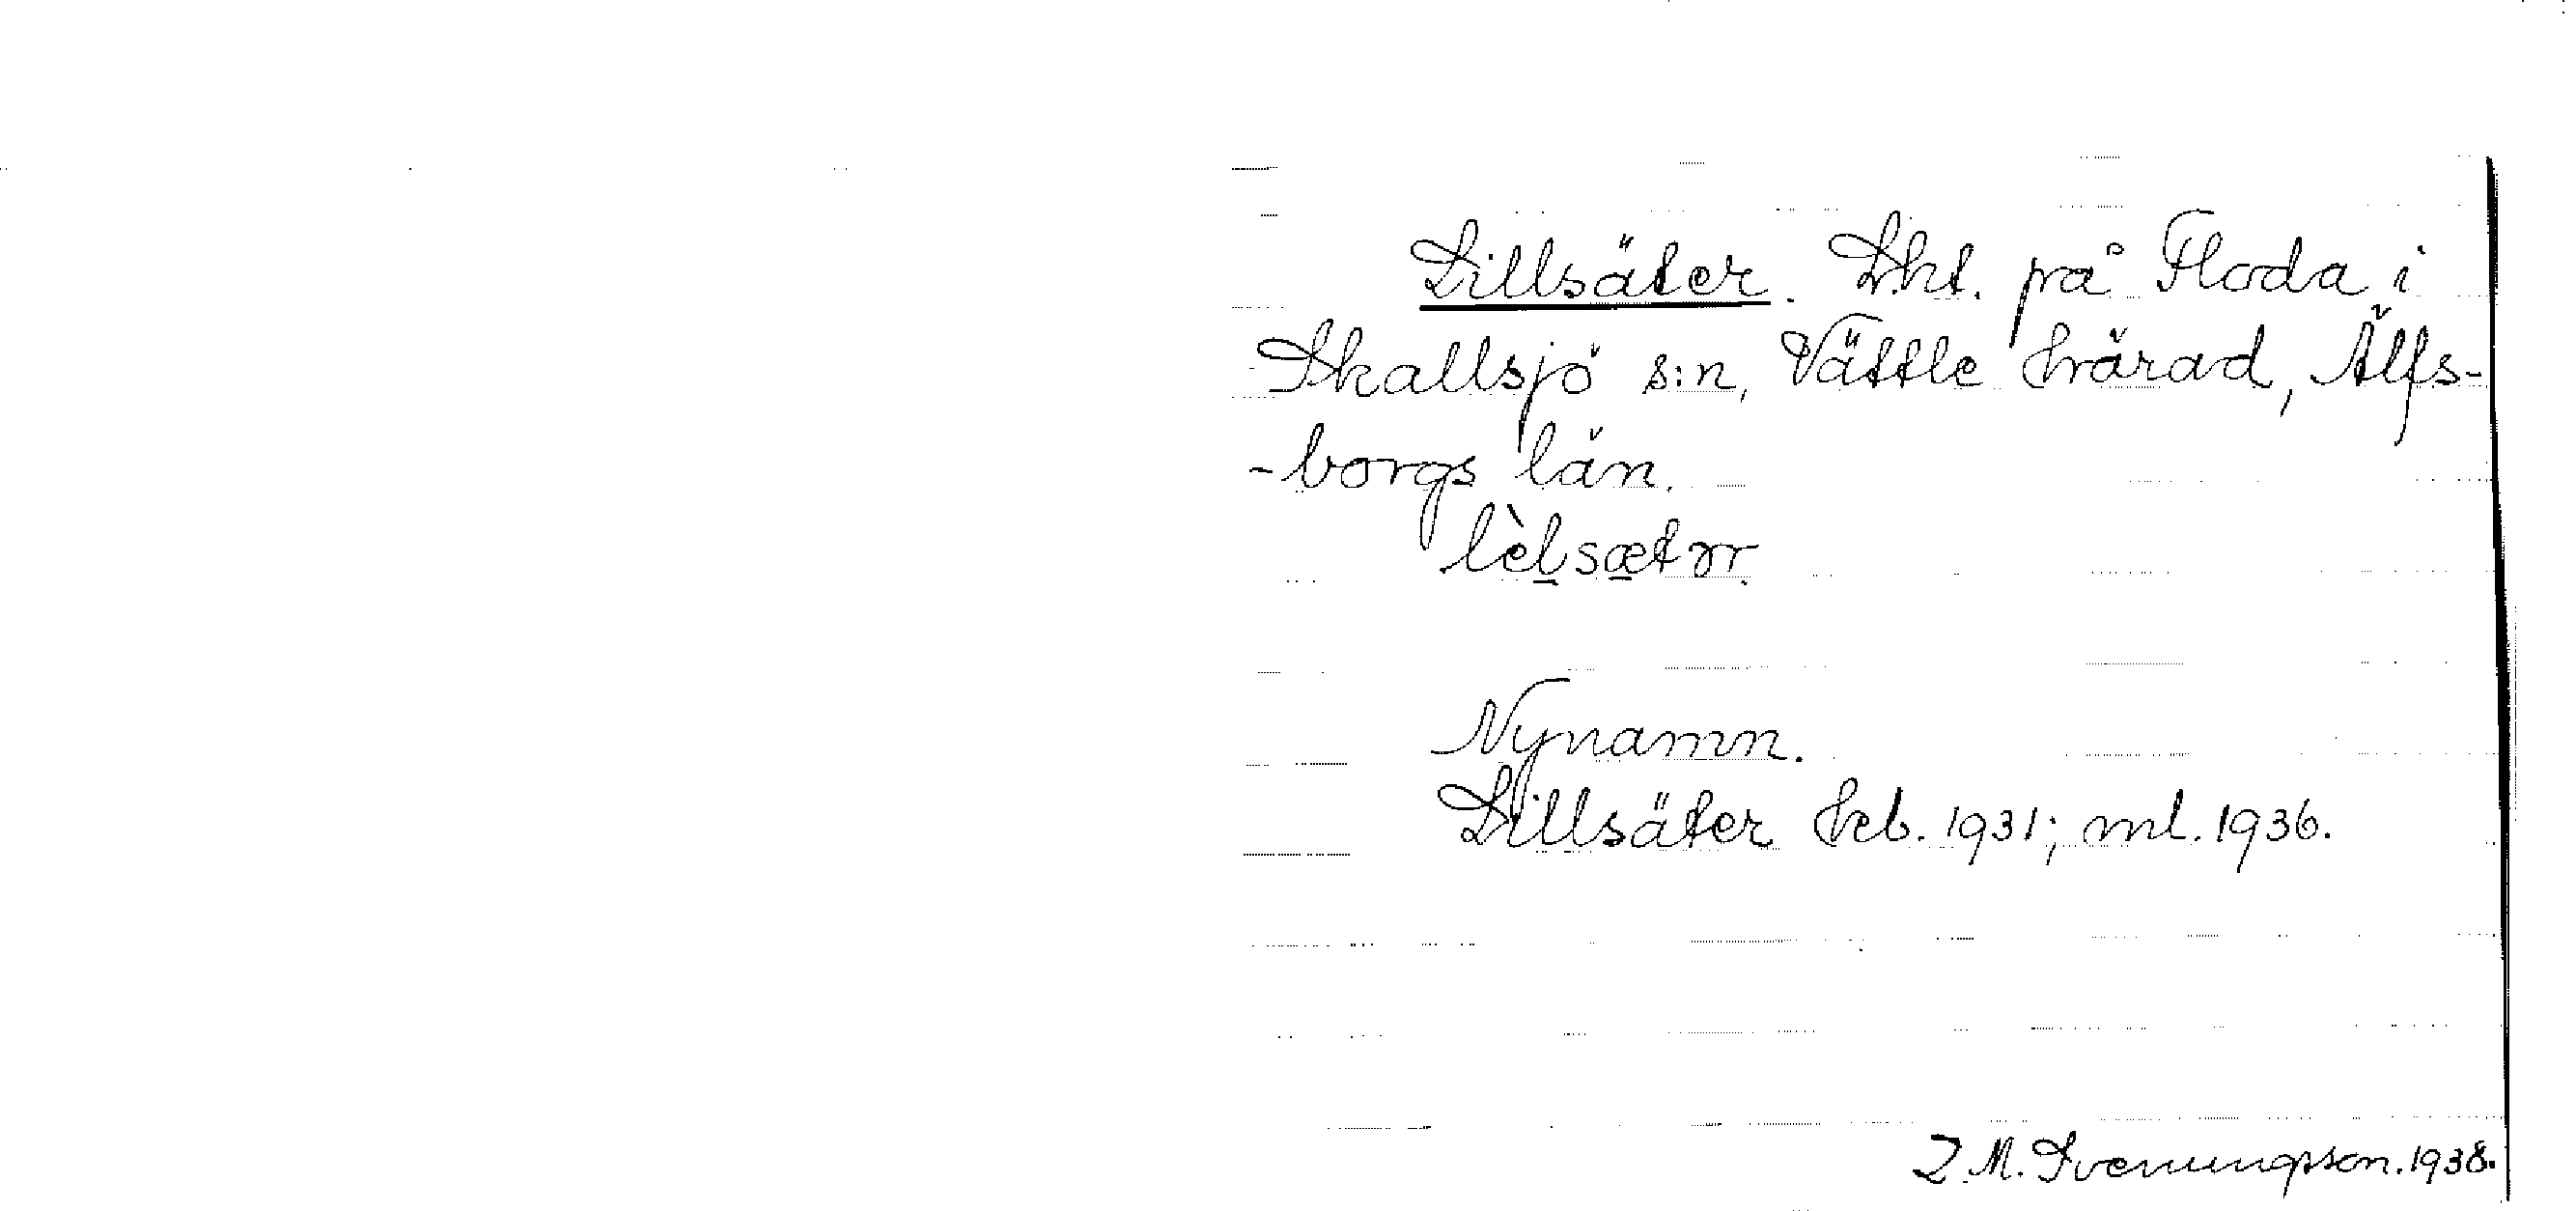 Lillsäter. Lht. på Floda i
Skallsjö s:n, Vättle härad, Älfs-
-borgs län.
lèlsætər.
Nynamn.
Lillsäter hcb. 1931; ml. 1936.
I. M. Svenungsson. 1938.